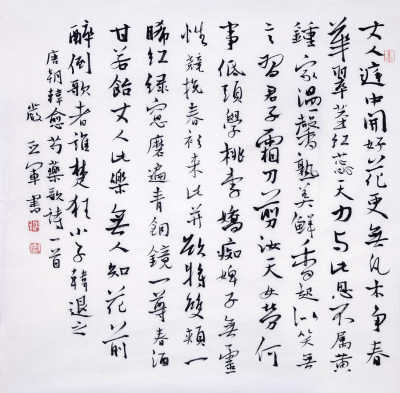 丈人庭中開好花更無凡木争春
華翠莖紅蕊天力与此恩不属黄
鍾家温馨熟美鮮香起似笑無
言習君子霜刀剪汝天女勞何
事低頭學桃李嬌痴婢子無靈
性競挽春衫来比并欲将雙頰一
睎红绿窓磨遍青铜鏡一尊春酒
甘若飴丈人此樂無人知花前
醉倒歌者誰楚狂小子韓退之
唐朝韓愈芍藥歌詩一首
軍書